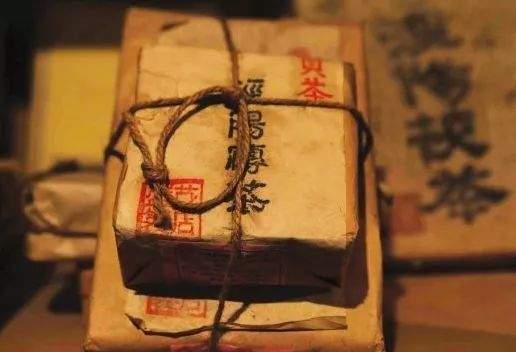 貢茶
涇陽磚茶
涇陽茯茶